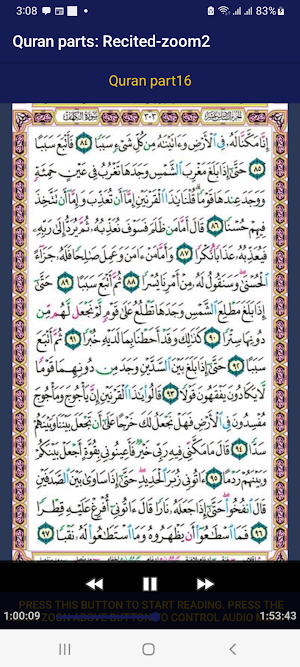 3:08 83%
Quran parts: Recited-zoom2
Quran part16
سورة الكهف ٣٠٣ الجزء السادس عشر
إِنَّا مَكَّنَّا لَهُۥ فِي ٱلْأَرْضِ وَءَاتَيْنَٰهُ مِن كُلِّ شَيْءٍ سَبَبًا ٨٤ فَأَتْبَعَ سَبَبًا
٨٥ حَتَّىٰٓ إِذَا بَلَغَ مَغْرِبَ ٱلشَّمْسِ وَجَدَهَا تَغْرُبُ فِي عَيْنٍ حَمِئَةٍ
وَوَجَدَ عِندَهَا قَوْمًا ۗ قُلْنَا يَٰذَا ٱلْقَرْنَيْنِ إِمَّآ أَن تُعَذِّبَ وَإِمَّآ أَن تَتَّخِذَ
فِيهِمْ حُسْنًا ٨٦ قَالَ أَمَّا مَن ظَلَمَ فَسَوْفَ نُعَذِّبُهُۥ ثُمَّ يُرَدُّ إِلَىٰ رَبِّهِۦ
فَيُعَذِّبُهُۥ عَذَابًا نُّكْرًا ٨٧ وَأَمَّا مَنْ ءَامَنَ وَعَمِلَ صَٰلِحًا فَلَهُۥ جَزَآءً
ٱلْحُسْنَىٰ ۖ وَسَنَقُولُ لَهُۥ مِنْ أَمْرِنَا يُسْرًا ٨٨ ثُمَّ أَتْبَعَ سَبَبًا ٨٩ حَتَّىٰٓ
إِذَا بَلَغَ مَطْلِعَ ٱلشَّمْسِ وَجَدَهَا تَطْلُعُ عَلَىٰ قَوْمٍ لَّمْ نَجْعَل لَّهُم مِّن
دُونِهَا سِتْرًا ٩٠ كَذَٰلِكَ وَقَدْ أَحَطْنَا بِمَا لَدَيْهِ خُبْرًا ٩١ ثُمَّ أَتْبَعَ
سَبَبًا ٩٢ حَتَّىٰٓ إِذَا بَلَغَ بَيْنَ ٱلسَّدَّيْنِ وَجَدَ مِن دُونِهِمَا قَوْمًا
لَّا يَكَادُونَ يَفْقَهُونَ قَوْلًا ٩٣ قَالُوا۟ يَٰذَا ٱلْقَرْنَيْنِ إِنَّ يَأْجُوجَ وَمَأْجُوجَ
مُفْسِدُونَ فِي ٱلْأَرْضِ فَهَلْ نَجْعَلُ لَكَ خَرْجًا عَلَىٰٓ أَن تَجْعَلَ بَيْنَنَا وَبَيْنَهُمْ
سَدًّا ٩٤ قَالَ مَا مَكَّنِّي فِيهِ رَبِّي خَيْرٌ فَأَعِينُونِي بِقُوَّةٍ أَجْعَلْ بَيْنَكُمْ
وَبَيْنَهُمْ رَدْمًا ٩٥ ءَاتُونِي زُبَرَ ٱلْحَدِيدِ ۖ حَتَّىٰٓ إِذَا سَاوَىٰ بَيْنَ ٱلصَّدَفَيْنِ
قَالَ ٱنفُخُوا۟ ۖ حَتَّىٰٓ إِذَا جَعَلَهُۥ نَارًا قَالَ ءَاتُونِيٓ أُفْرِغْ عَلَيْهِ قِطْرًا
٩٦ فَمَا ٱسْطَٰعُوٓا۟ أَن يَظْهَرُوهُ وَمَا ٱسْتَطَٰعُوا۟ لَهُۥ نَقْبًا ٩٧
PRESS THIS BUTTON TO START READING. PRESS THE
1:00:09 ZOOM ABOVE BUTTON TO CONTROL AUDIO 1:53:43